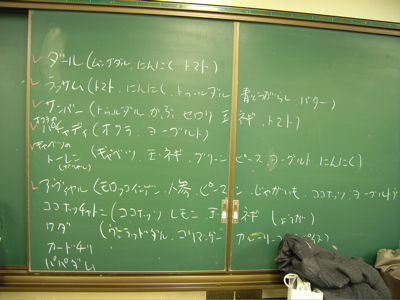 ✓ ダール (ムングダル、にんにく、トマト)
✓ ラッサム (トマト、にんにく、トゥールダル 青とうがらし バター)
✓ サンバー (トゥールダル かぶ セロリ 玉ネギ、トマト)
✓ オクラパチャディ (オクラ、ヨーグルト)
✓ キャベツの
トーレン (キャベツ、玉ネギ、グリーンピース ヨーグルト にんにく)
✓ アヴィヤル (モロッコインゲン、人参、ピーマン、じゃがいも、ココナッツ、ヨーグルト)
ココナッツチャトニ (ココナッツ レモン 玉ネギ しょうが)
ワダ (ウラッドダル、コリアンダー カレーリーフ)
カードチリ
パパダム